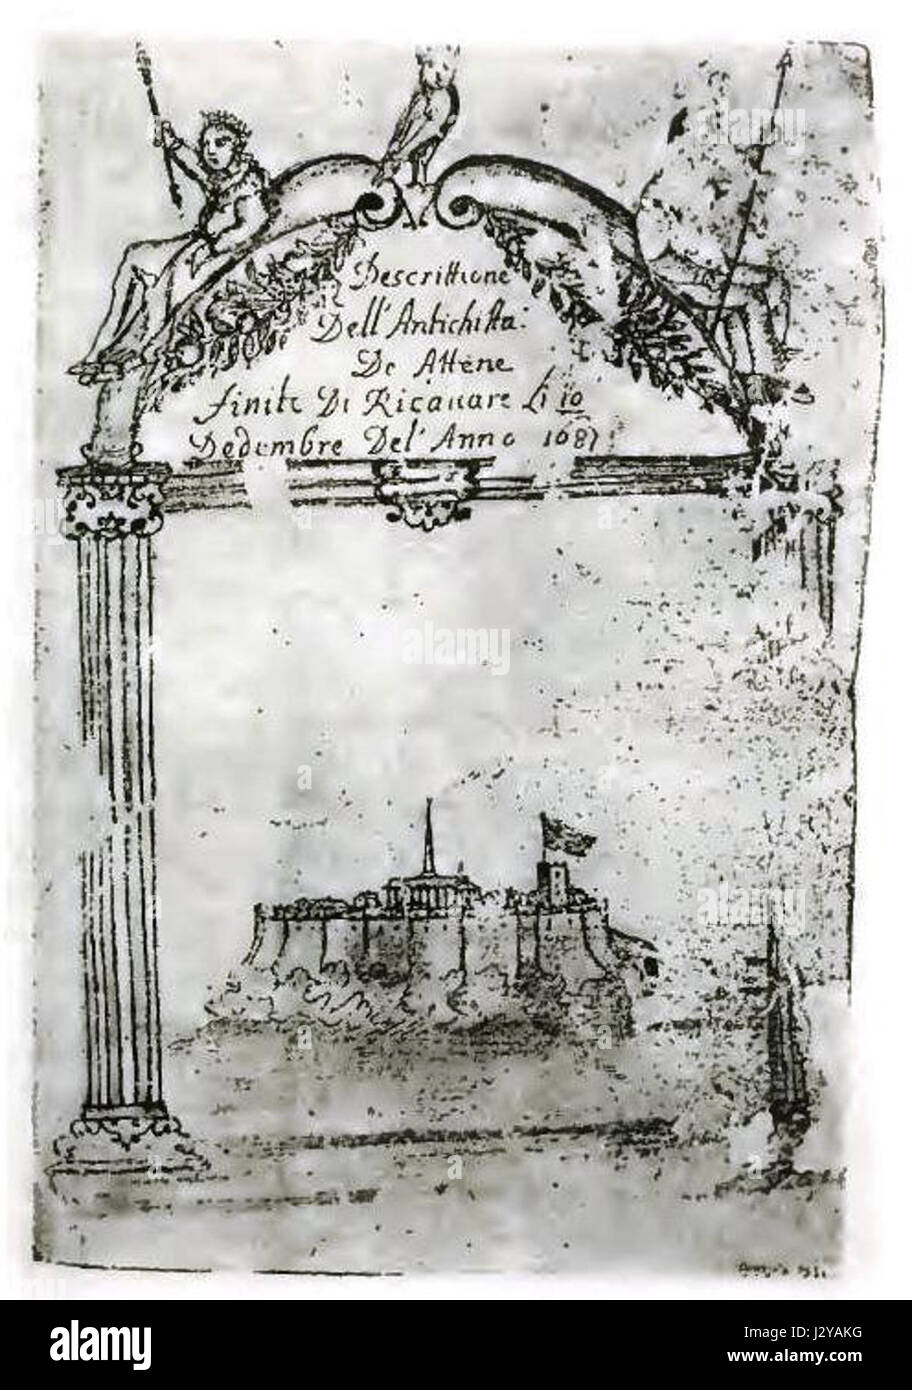 Descrittione
Dell'Antichitta.
De Attene
finite Di Ricauare Li 10
Dedembre Del' Anno 1687
alamy
Image ID: J2YAKG
www.alamy.com